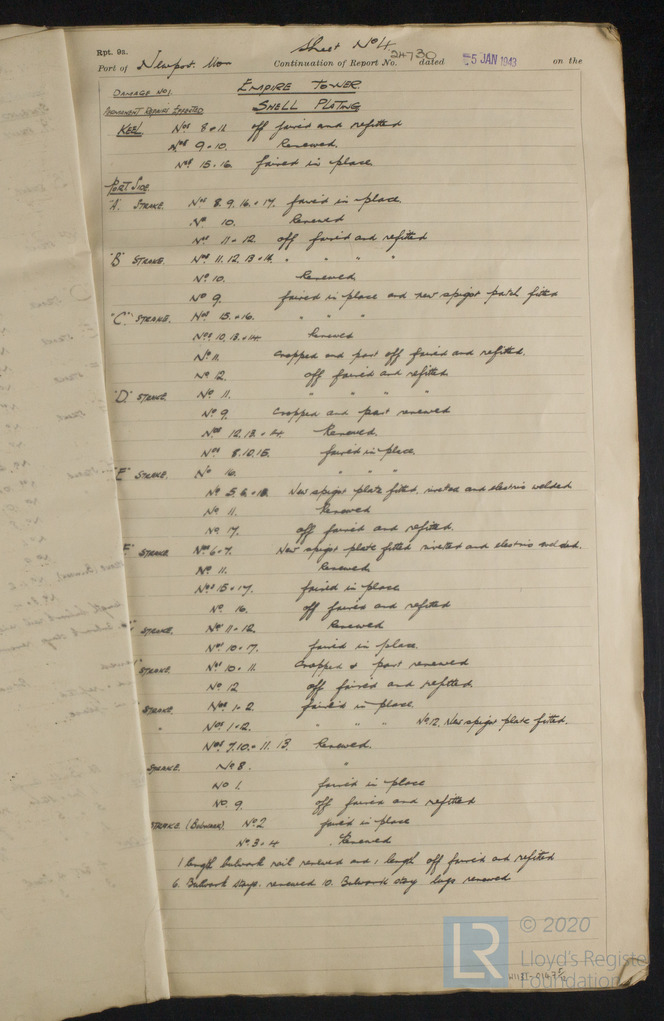 Sheet No 4
Rpt. 9s.
Port of Newport. Mon Continuation of Report No. 24730 dated 5 JAN 1943 on the
DAMAGE No 1. EMPIRE TOWER.
PERMANENT REPAIRS EFFECTED. SHELL PLATING
KEEL. Nos 8 + 11 off faired and refitted
Nos 9 + 10. Renewed.
Nos 15 + 16. faired in place.
PORT SIDE.
"A" STRAKE. Nos 8. 9. 16. + 17. faired in place.
No 10. Renewed
Nos 11 + 12. off faired and refitted
"B" STRAKE. Nos 11. 12. 13 + 14. " " " "
No 10. Renewed.
No 9. faired in place and new spigot patch fitted
"C" STRAKE. Nos 15. + 16. " " "
Nos 10. 13. + 14. Renewed
No 11. Cropped and part off faired and refitted.
No 12. off faired and refitted.
"D" STRAKE No 11. " " " "
No 9. Cropped and part renewed
Nos 12. 13. + 14. Renewed.
Nos 8. 10. 15. faired in place.
"E" STRAKE. No 16. " " "
No 5. 6. + New spigot plate fitted, riveted and electric welded
No 11. Renewed
No 17. off faired and refitted.
F" STRAKE. Nos 6 + 7. New spigot plate fitted riveted and electric welded.
No 11. Renewed.
Nos 15 + 17. faired in place
No 16. off faired and refitted
STRAKE. Nos 11 + 12. Renewed
Nos 10 + 7. faired in place.
STRAKE. Nos 10 + 11. Cropped & part renewed
No 12 off faired and refitted.
STRAKE. Nos 1 + 2. faired in place
" Nos 1 + 12. " " " No 12. New spigot plate fitted.
Nos 7. 10. + 11. 13. Renewed.
STRAKE. No 8. "
No 1. faired in place
No 9. off faired and refitted
STRAKE (Bulwark). No 2 faired in place
No. 3 + 4 Renewed
1 length bulwark rail renewed and 1 length off faired and refitted
6. Bulwark stays. renewed 10. Bulwark stay lugs renewed
© 2020
LR Lloyd's Register
Foundation